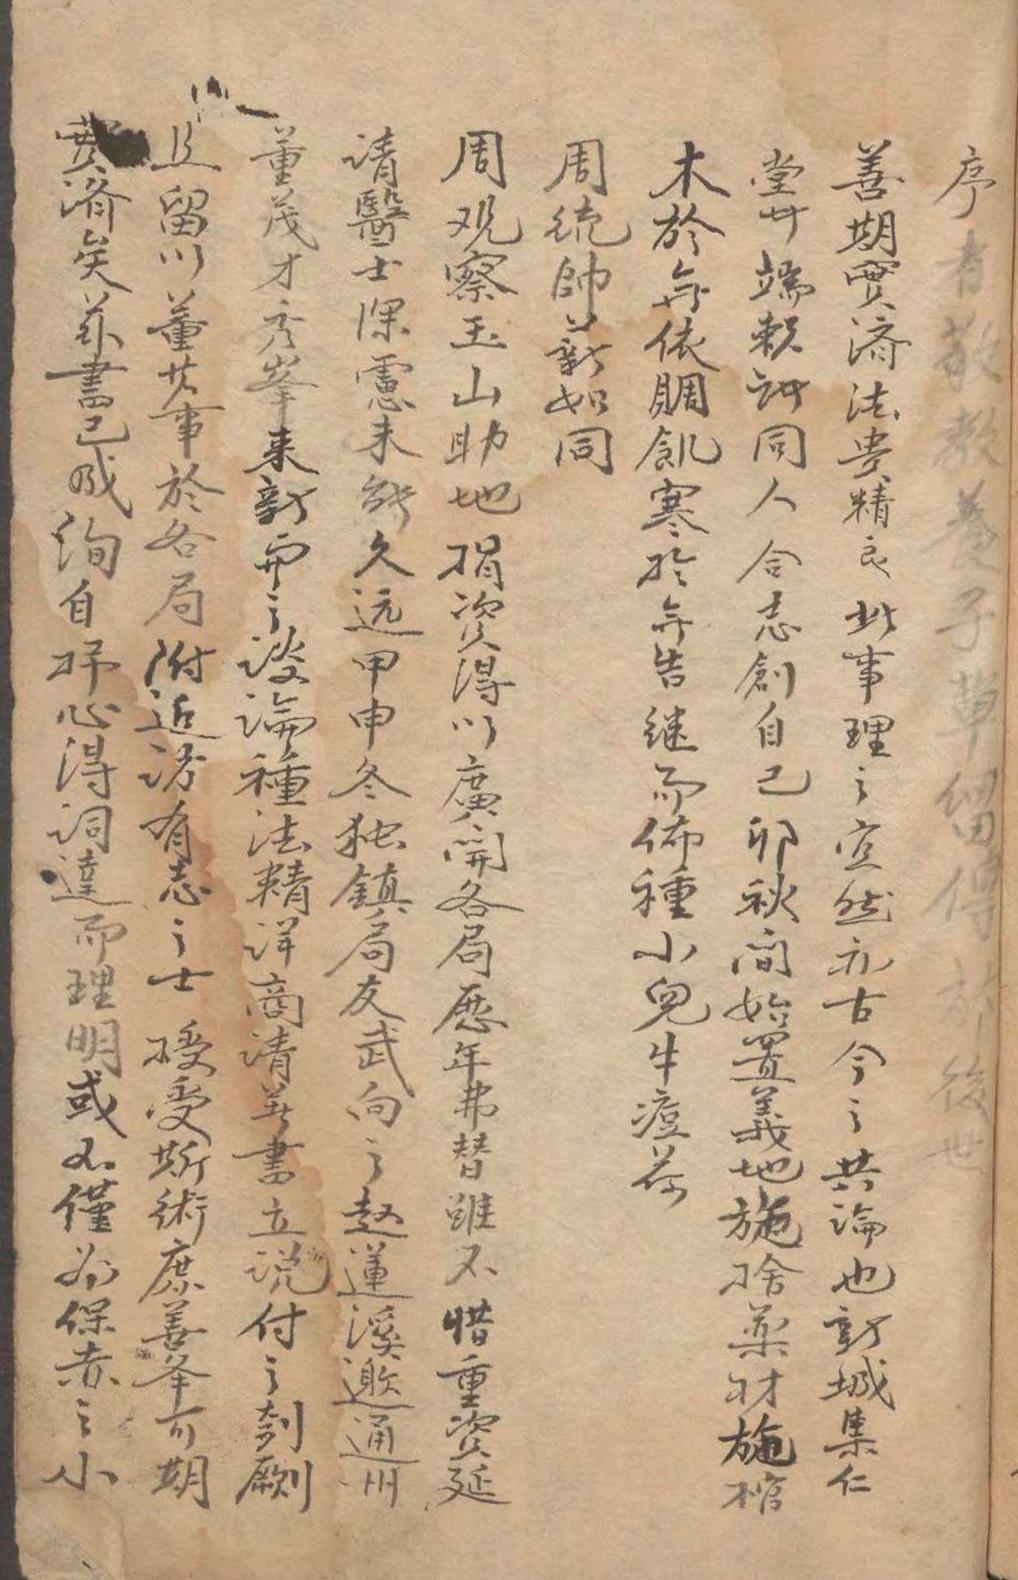 序者敬教養子草留傳於後世
善期實濟法貴精良此事理之宜然亦古今之共論也新城集仁
堂廿端賴諸同人合志創自己卯秋間始置義地施捨藥材施棺
木於無依賙飢寒於無告继而佈種小兒牛痘荷
周统帥薪如同
周观察玉山助地捐资得以廣開各局歷年弗替雖不惜重资延
请醫士深慮未能久远甲申冬独鎮局友武向之赵蓮溪邀通州
董茂才秀峯来新而之谈論種法精详商请著書立说付之剞劂
且留以董其事於各局附近访有志之士授受斯術庶善舉可期
實济矣兹書已成徇自抒心得词達而理明或不僅为保赤之小